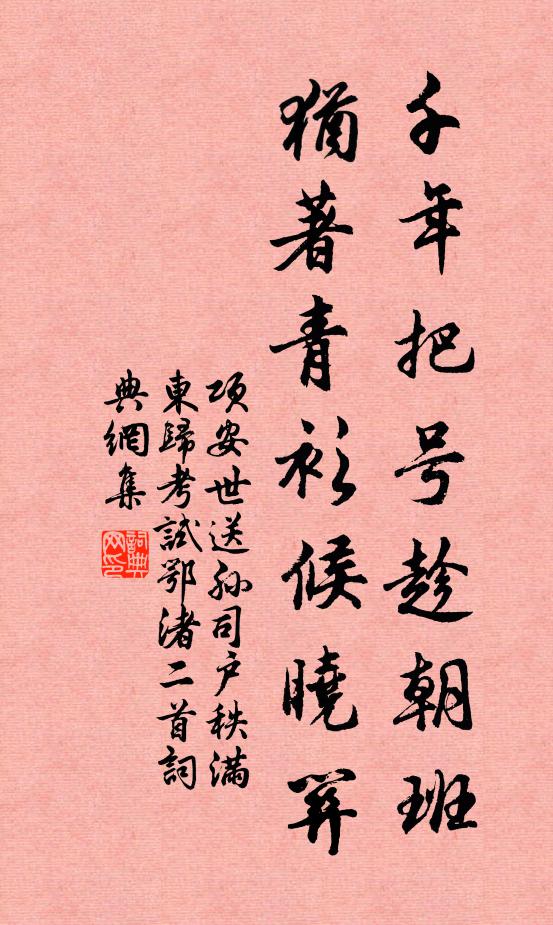 千年把号趁朝班
猶著青衫候曉關
項安世送孫司戶秩滿
東歸考試鄂渚二首詞
典網集
詞典网印